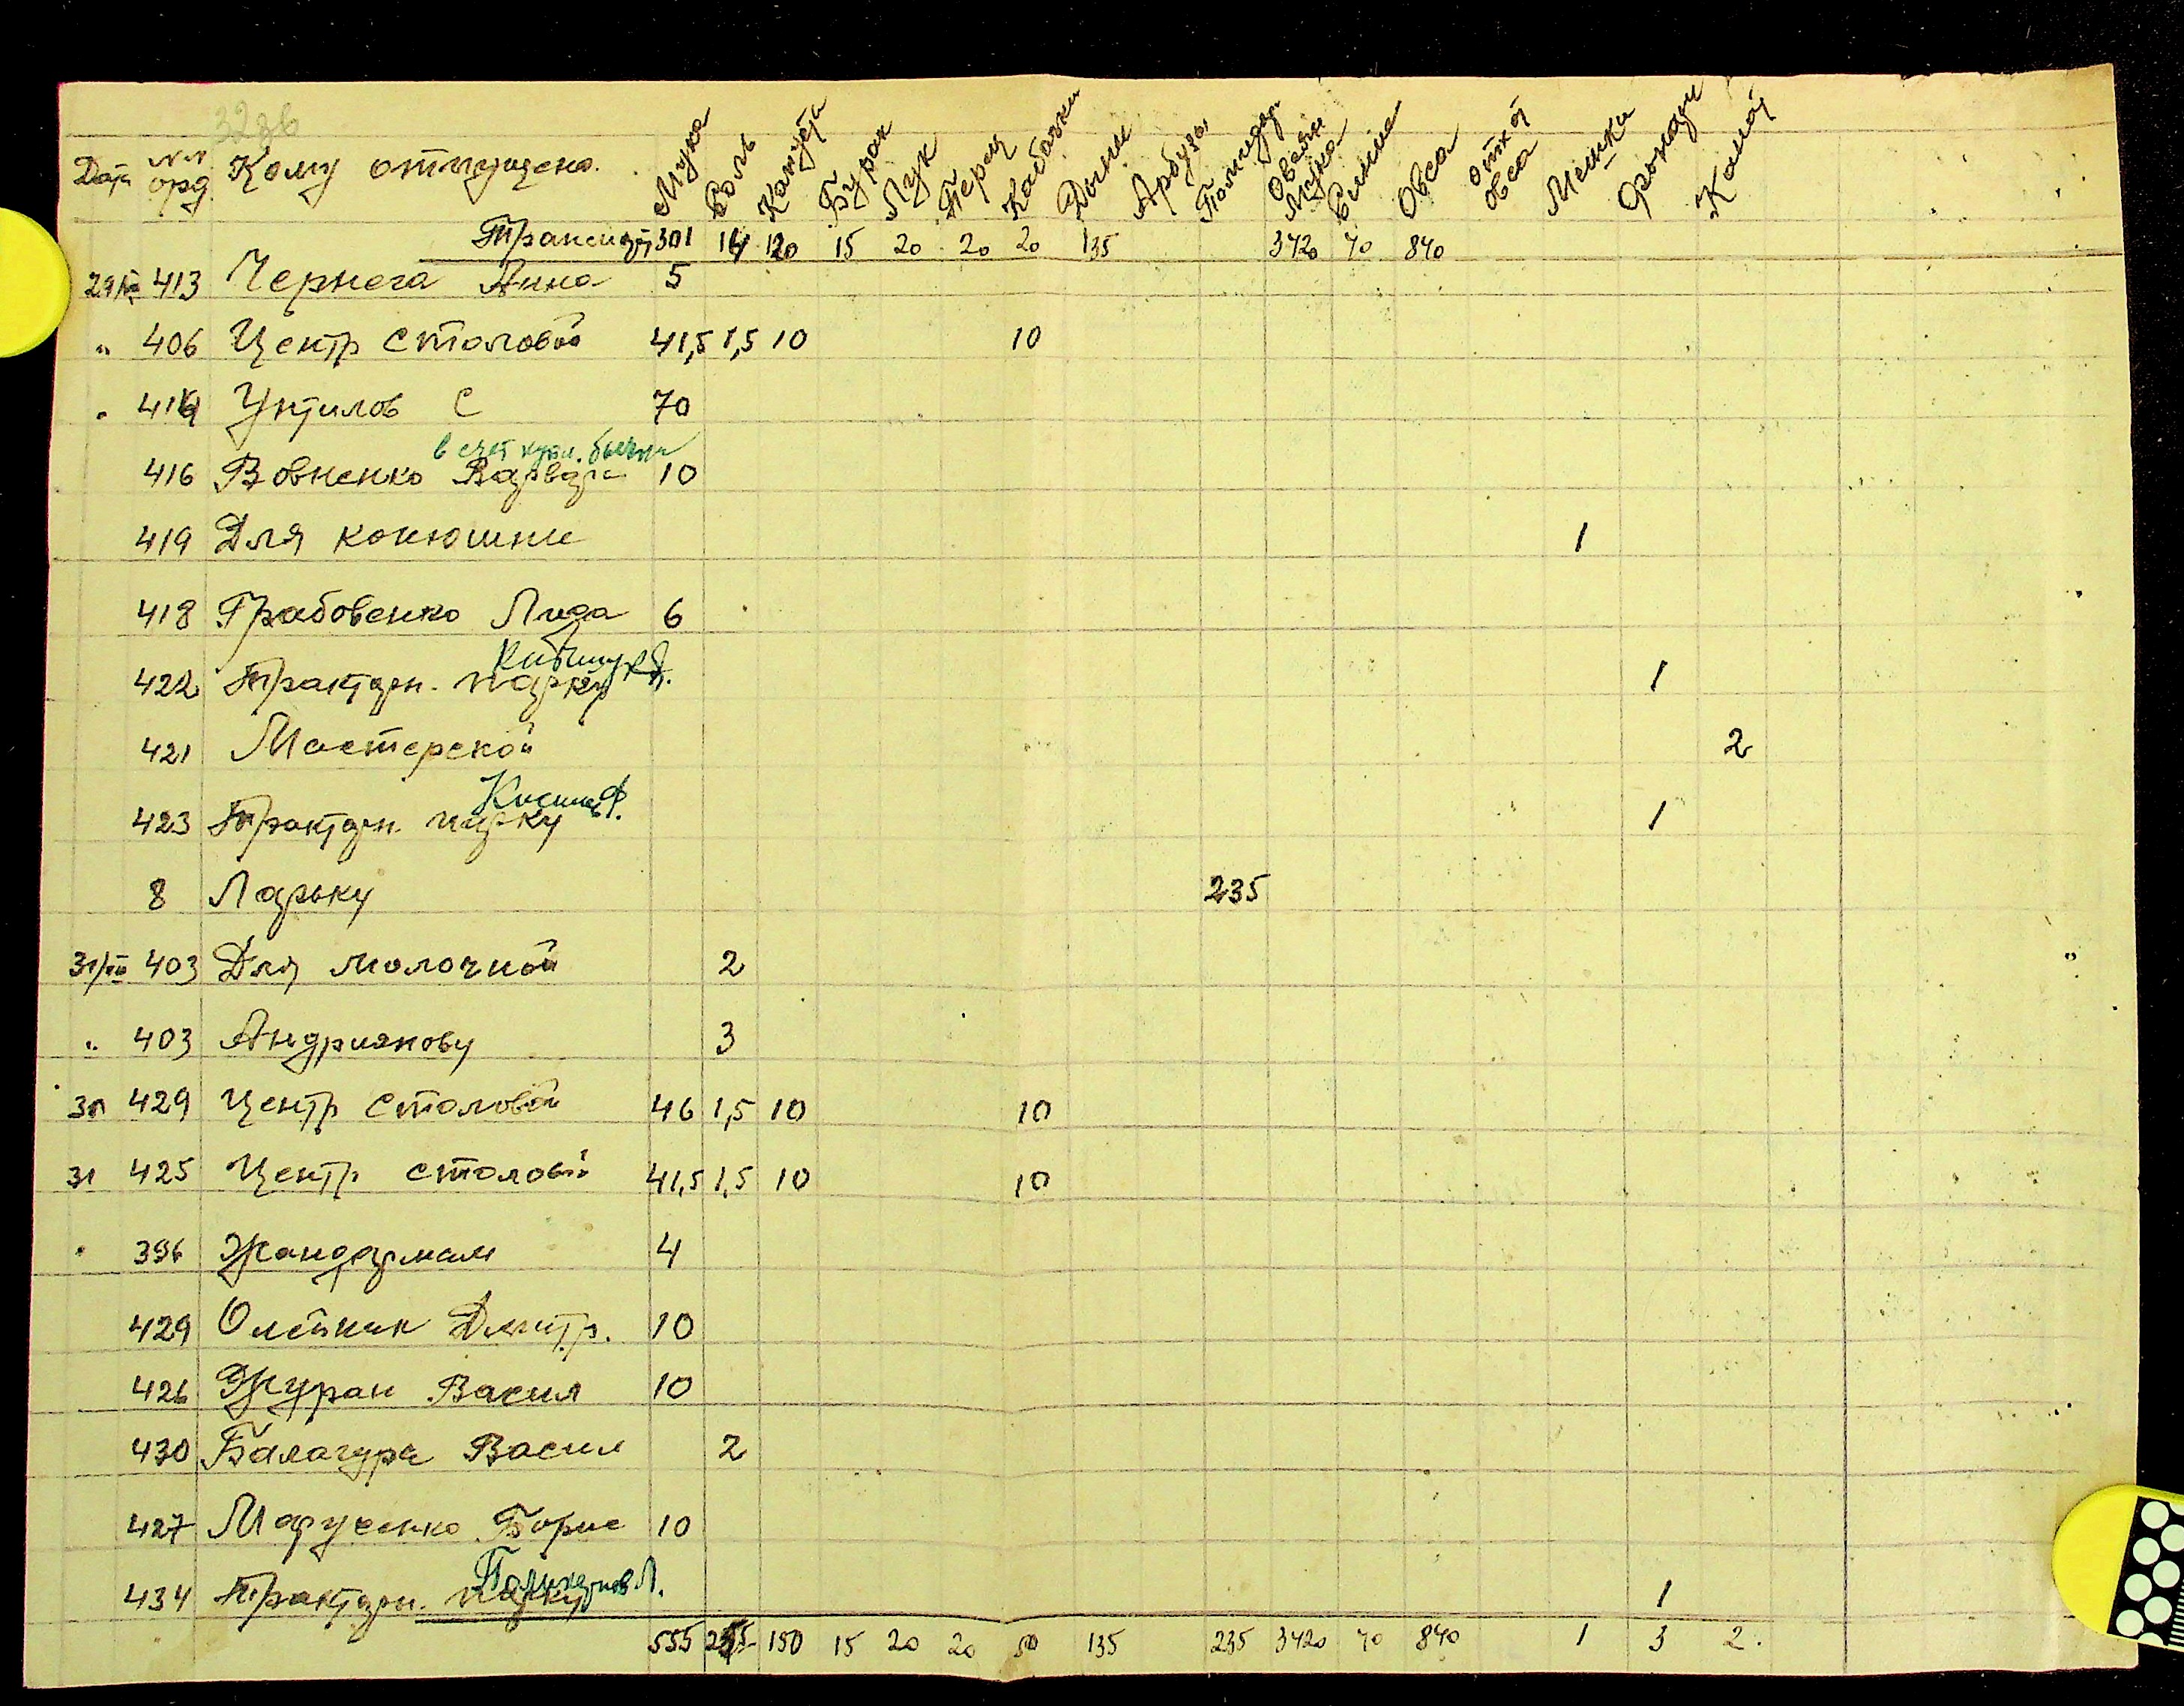 Дата №№ орд. Кому отпущено. Мука Соль Капуста Бурак Лук Перец Кабачки Дыни Арбузы Помидоры Овсян Мука Овса Отход овса Мешки Фонари
Транспорт 301 14 120 15 20 20 20 135 3420 70 840
413 Чернега Анна 5
" 406 Центр столовой 41,5 1,5 10 10
" С 70
в счет
416 Вовненко Варвара 10
419 Для конюшни 1
418 Грабовенко Лиза 6
422 Тракторн. парку 1
421 Мастерской 2
423 Тракторн. парку 1
8 Ларьку 235
403 Для молочной 2
" 403 Андриякову 3
429 Центр столовой 46 1,5 10 10
31 425 Центр столовой 41,5 1,5 10 10
" 396 Жандармам 4
429 Олейник Дмитр. 10
426 Журан Васил 10
430 Балагура Васил 2
427 Марученко Борис 10
434 Тракторн. парку 1
555 150 15 20 20 50 135 235 3420 70 840 1 3 2.